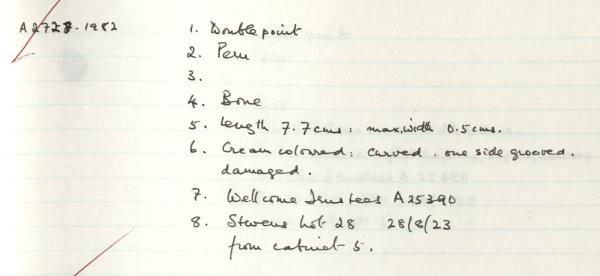 A2728.1982
1. Double point
2. Peru
3.
4. Bone
5. Length 7.7cms. max.width 0.5cms.
6. Cream coloured. curved. one side grooved.
damaged.
7. Wellcome Trustees A25390
8. Stevens Lot 28 28/8/23
from cabinet 5.